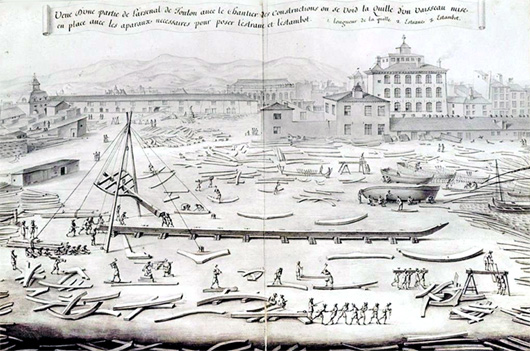 Veue d'une partie de l'arsenal de Toulon avec le Chantier des Constructions ou se Void la Quille d'un Vaisseau mise
en place avec les aparaux necessaires pour poser l'estrave et l'estambot. 1. longueur de la quille 2. Estrave 3. Estambot.